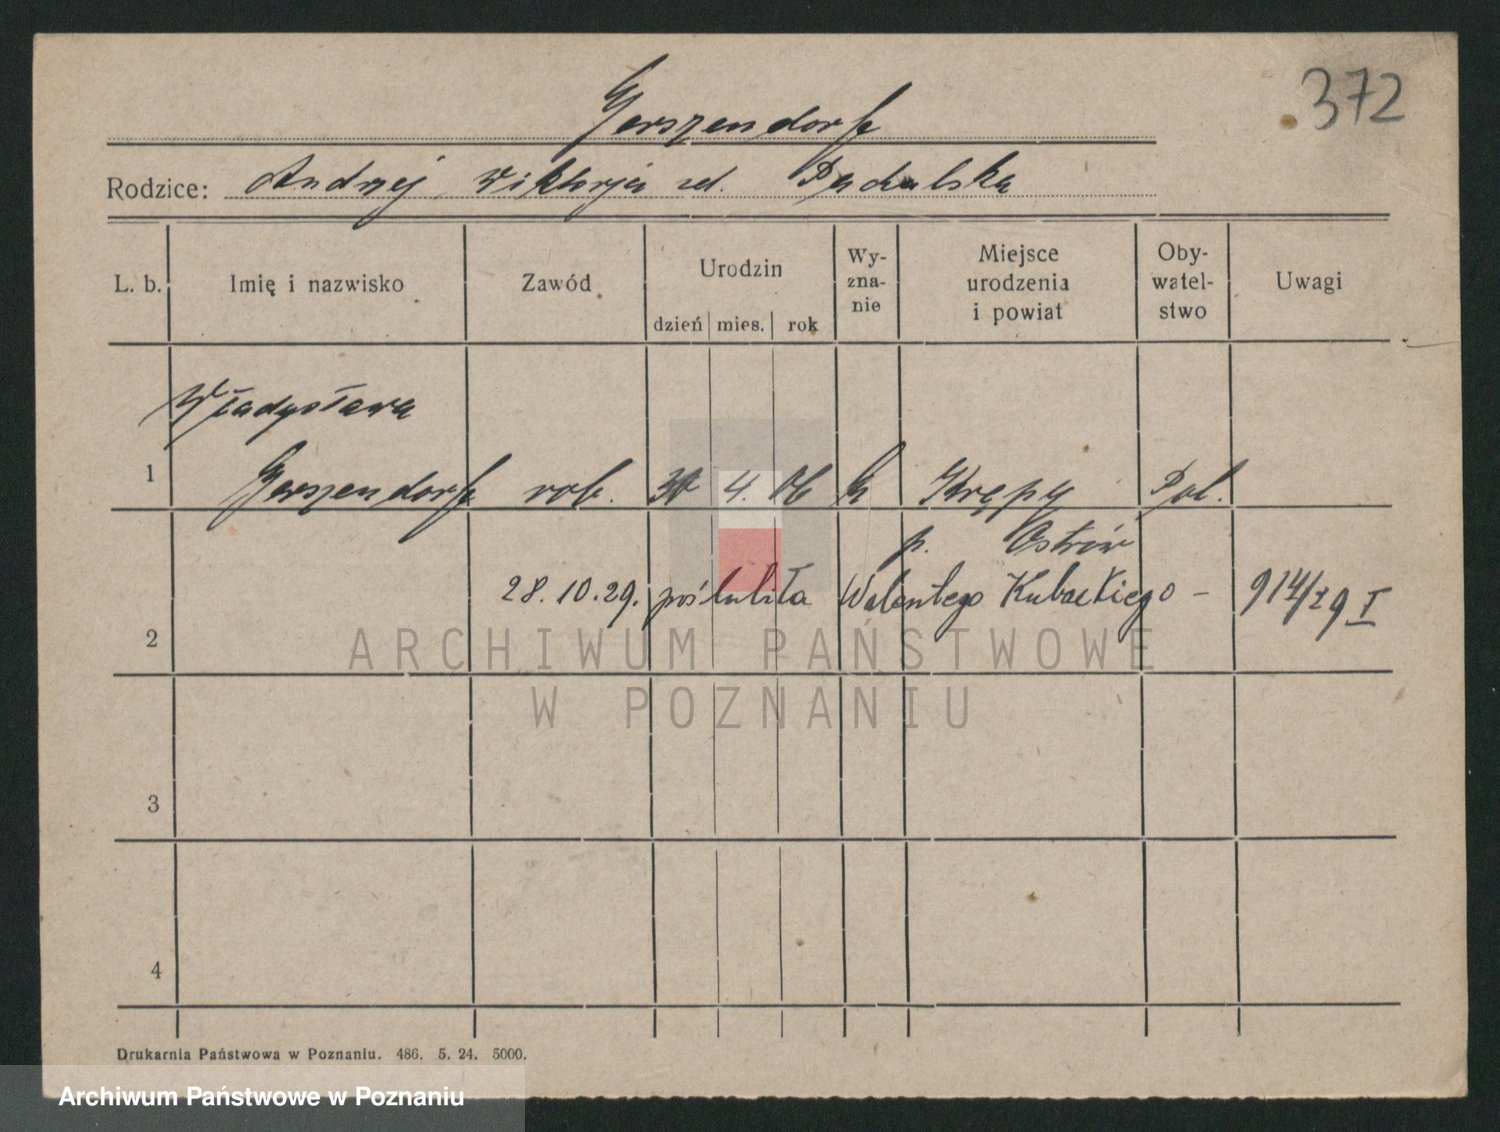 372
Gerszendorf
Rodzice: Andrzej, Wiktorja zd. Pachulska
L. b. Imię i nazwisko Zawód Urodzin dzień mies. rok Wy-zna-nie Miejsce urodzenia i powiat Oby-watel-stwo Uwagi
Władysława
1 Gerszendorf rob. 30 4. 06 k Krępy Pol.
p. Ostrów
28.10.29. poślubiła Walentego Kubackiego - 914/29 I
2
3
4
ARCHIWUM PAŃSTWOWE
W POZNANIU
Drukarnia Państwowa w Poznaniu. 486. 5. 24. 5000.
Archiwum Państwowe w Poznaniu